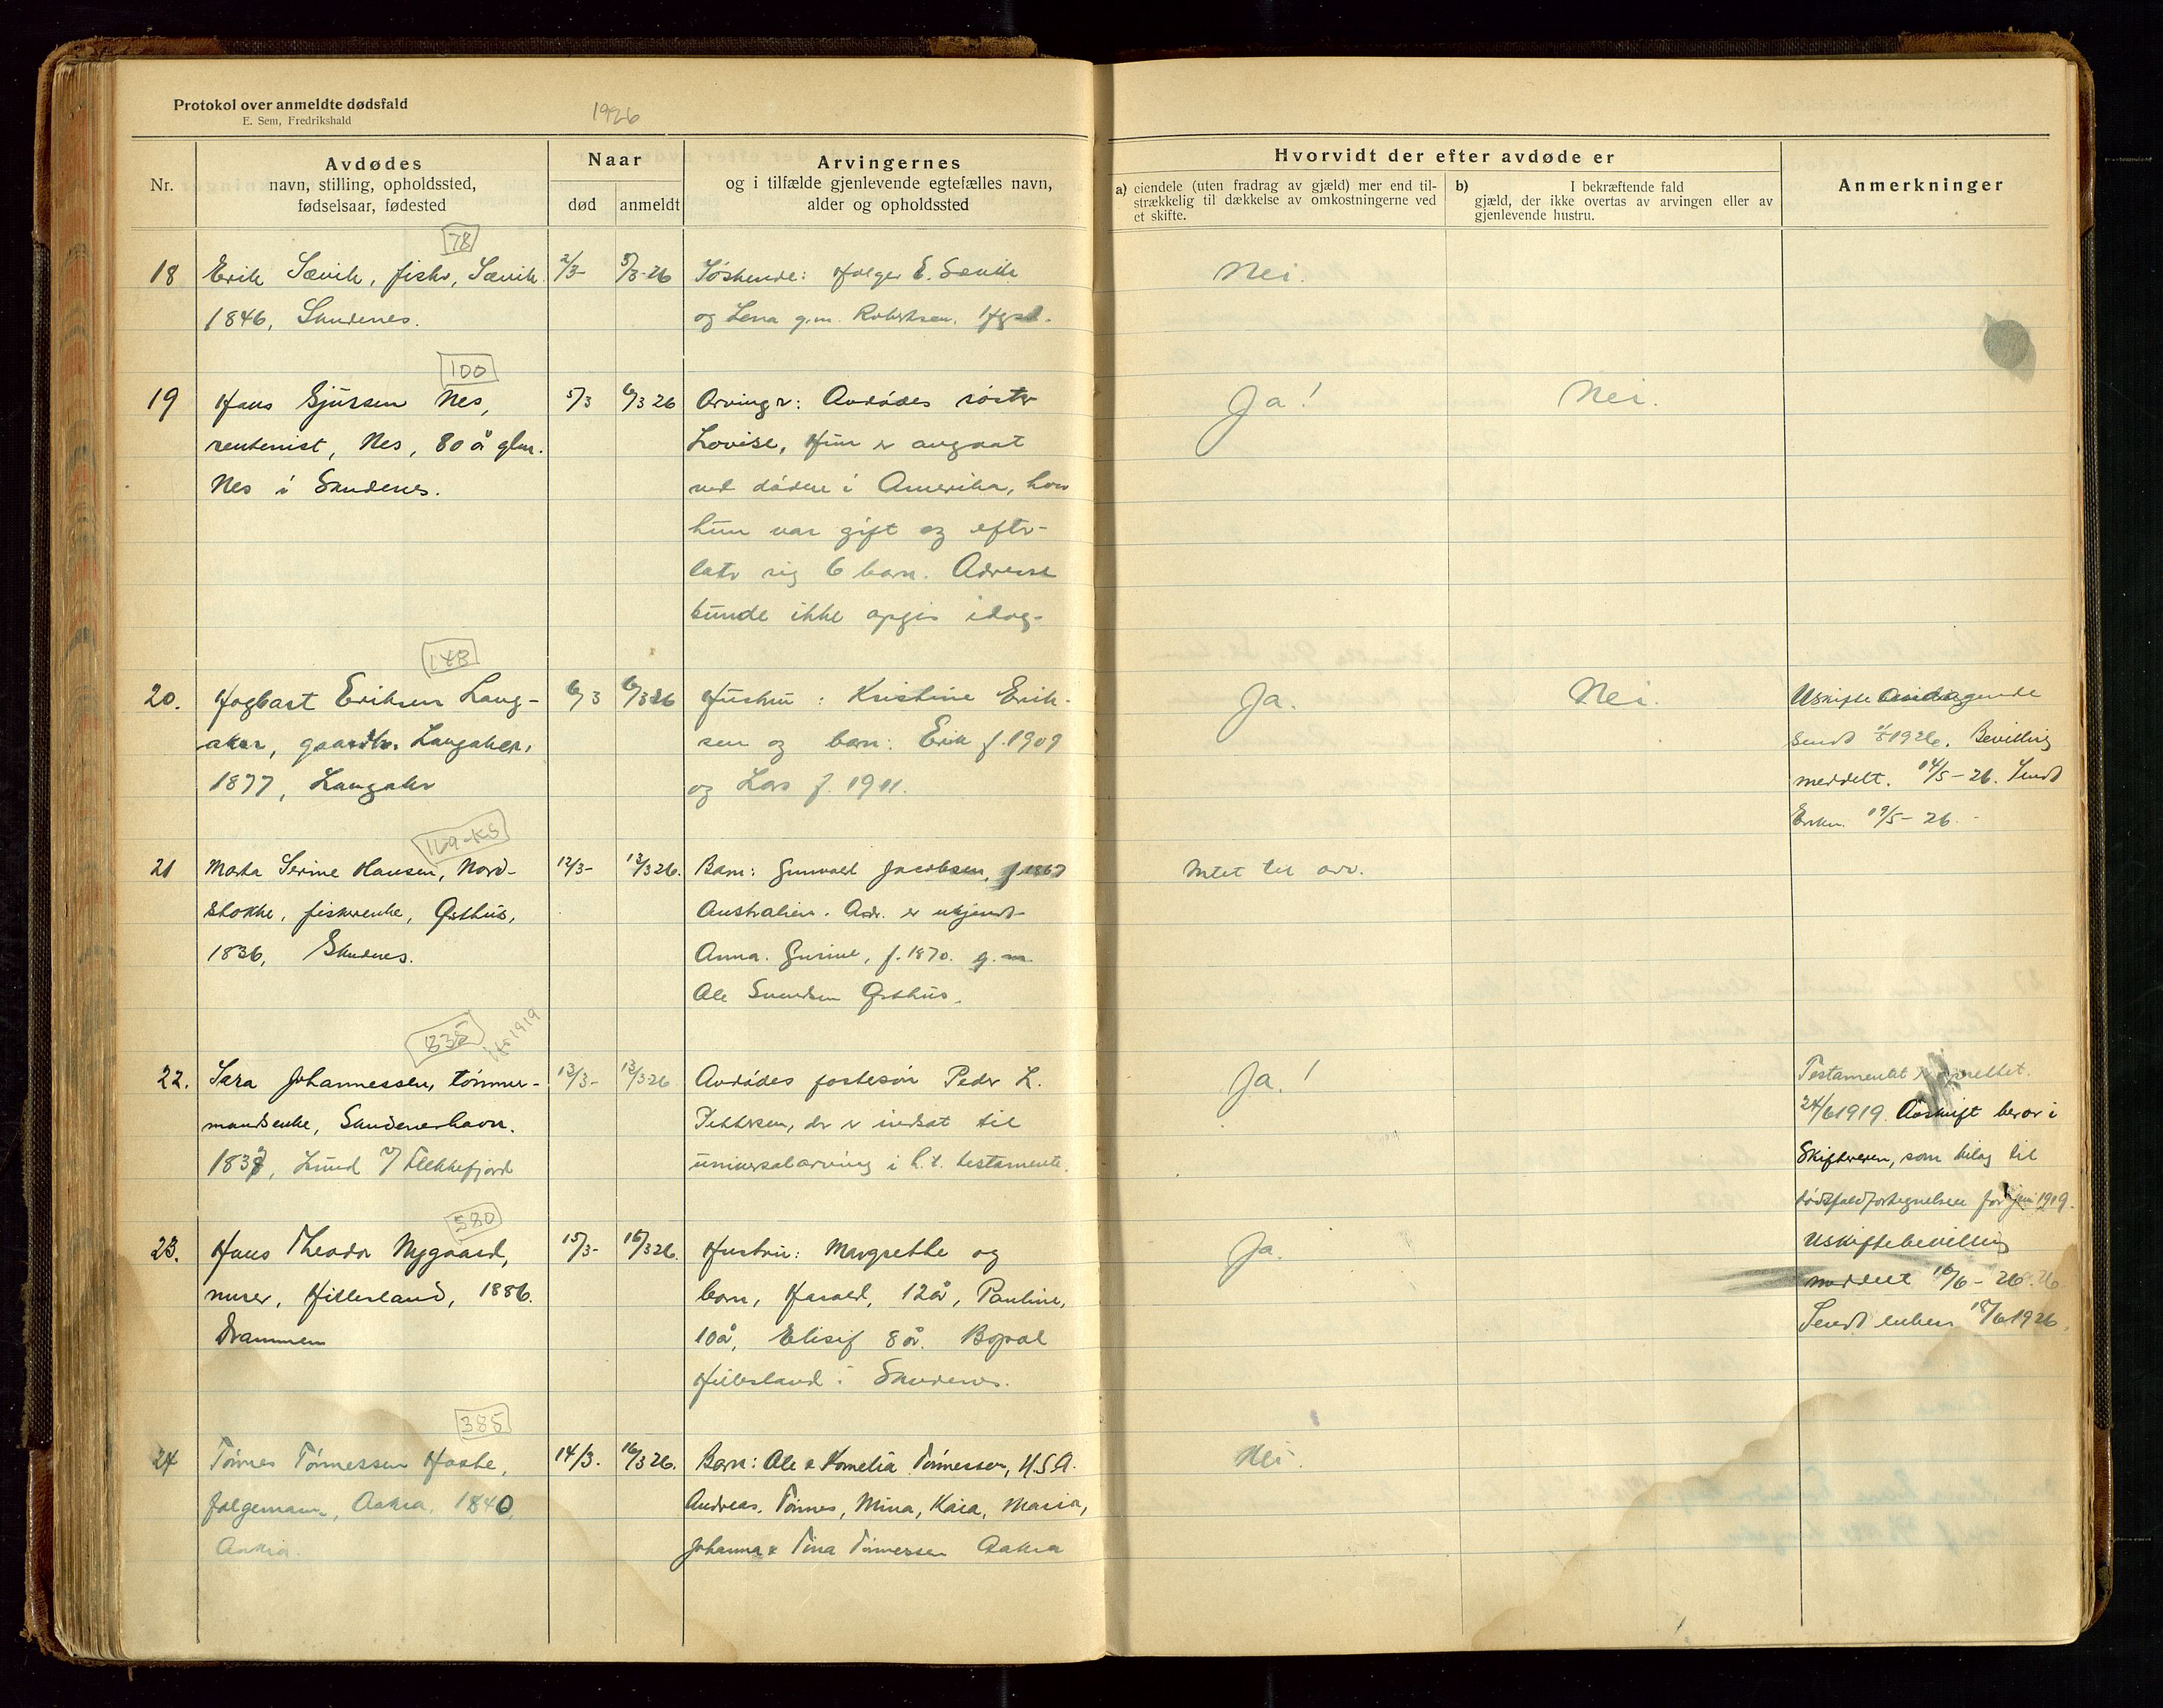 Protokol over anmeldte dødsfald
E. Sem, Fredrikshald
1926
Nr.
Avdødes
navn, stilling, opholdssted,
fødselsaar, fødested
Naar
død
anmeldt
Arvingernes
og i tilfælde gjenlevende egtefælles navn,
alder og opholdssted
Hvorvidt der efter avdøde er
a) eiendele (uten fradrag av gjæld) mer end til-
strækkelig til dækkelse av omkostningerne ved
et skifte.
b) I bekræftende fald
gjæld, der ikke overtas av arvingen eller av
gjenlevende hustru.
Anmerkninger
78
18 Erik Sævik, fisker, Sævik
1846, Skudenes.
2/3- 5/3-26
Søskende: Holger E. Sævik
og Lena g.m. Robertsen, Hgsd.
Nei.
100
19 Hans Gjursen Nes,
rentenist, Nes, 80 å glm.
Nes i Skudenes.
5/3 6/3 26
Arvinger: Avdødes søster
Lovise, Hun er avgaat
ved døden i Amerika, hvor
hun var gift og efter-
later sig 6 barn. Adresse
kunde ikke opgis idag.
Ja!
Nei.
148
20. Hagbart Eriksen Lang-
aker, gaardbr. Langaker,
1877, Langaker
6/3 6/3 26
Hustru: Kristine Erik-
sen og barn: Erik f. 1909
og Lars f. 1911.
Ja.
Nei.
Uskifte andragende
sendt 1926. Bevilling
meddelt. 14/5-26. Sendt
19/5-26.
169-KS
21 Marta Serine Hansen, Nord-
stokke, fiskerenke, Østhus,
1836, Skudenes.
12/3- 12/3 26.
Barn: Gunvald Jacobsen, f. 1867
Australien. Adr. er ukjendt
Anna Gurine, f. 1870. g.m.
Ole Svendsen Østhus.
Intet til arv.
835
1919
22. Sara Johannessen, tømmer-
mandsenke, Skudeneshavn.
1838, Lund v/ Flekkefjord
13/3- 13/3 26
Avdødes fostesøn Peder L.
Pettersen, der er indsat til
universalarving i h.t. testamente.
Ja.!
Testamentet oprettet
24/6 1919. Avskrift beror i
Skifteretten, som bilag til
dødsfaldfortegnelsen for juni 1919.
580
23. Hans Theodor Nygaard,
murer, Hillesland, 1886.
Drammen
15/3- 16/3 26.
Hustru: Margrethe og
barn, Harald, 12 år, Pauline,
10 å, Elisif 8 år. Bopæl
Hillesland i Skudenes.
Ja.
Uskiftebevilling
meddelt 16/6-26
Sendt enken 18/6 1926.
385
24 Tönnes Tönnessen Haabe,
folgemann, Aakra. 1840,
Aakra.
14/3. 16/3 26.
Barn: Ole & Kornelia Tönnessen, U.S.A.
Andreas, Tönnes, Mina, Kaia, Maria,
Johanna & Tina Tönnessen Aakra
Nei.